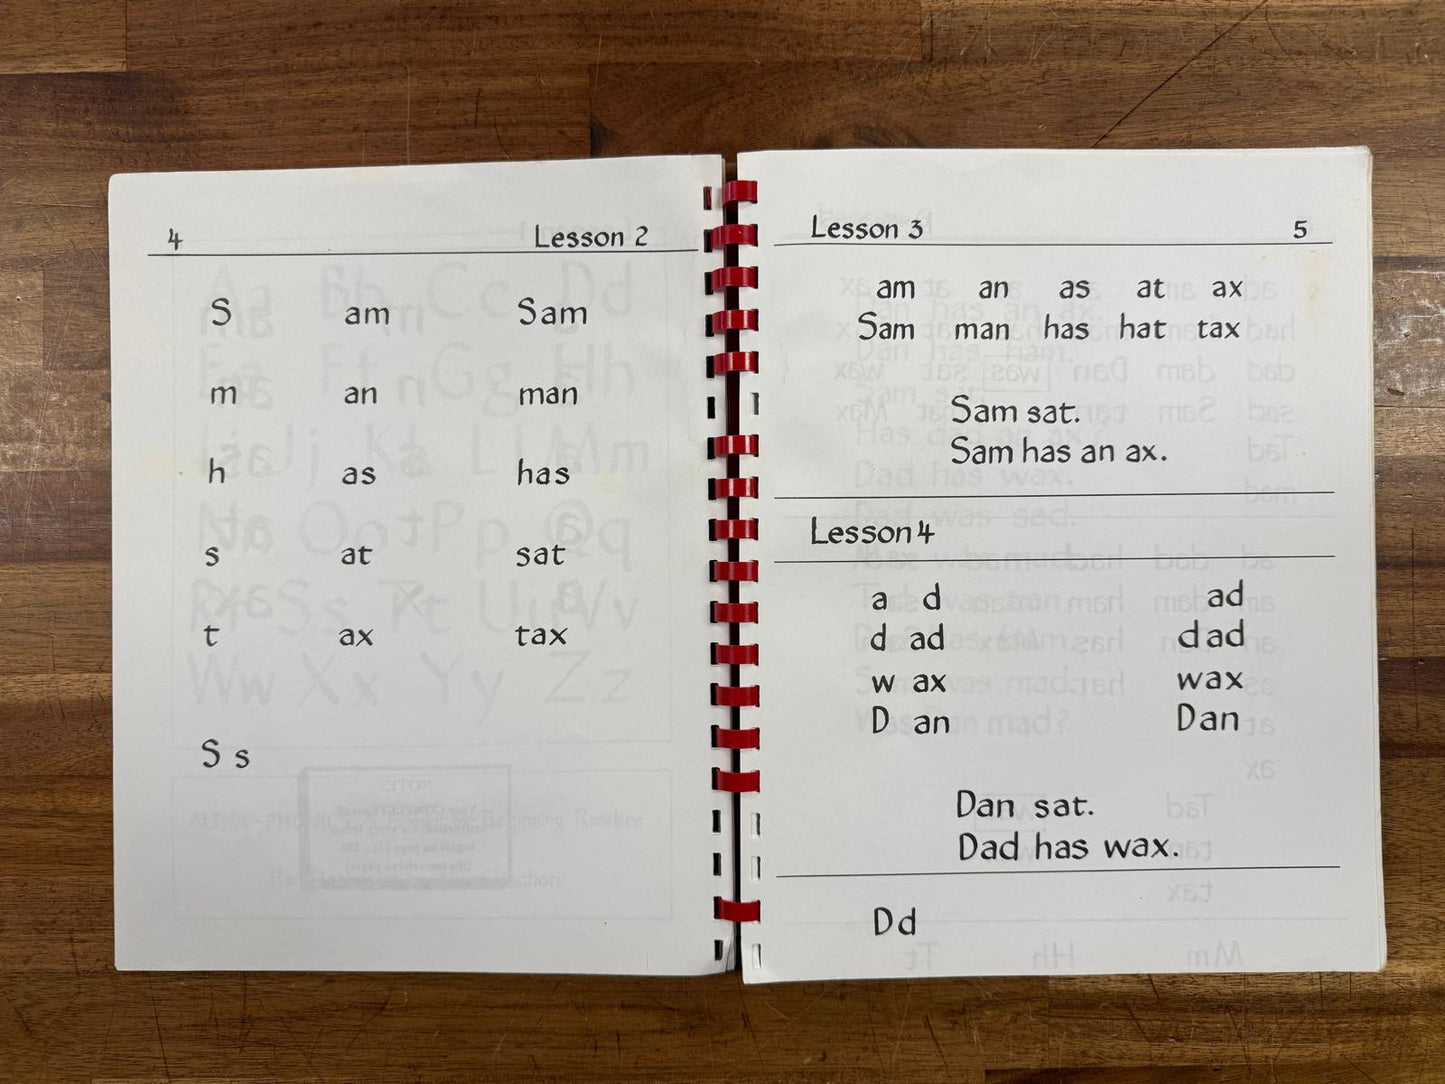 4 Lesson 2
S am Sam
m an man
h as has
s at sat
t ax tax
S s
Lesson 3 5
am an as at ax
Sam man has hat tax
Sam sat.
Sam has an ax.
Lesson 4
a d ad
d ad dad
w ax wax
D an Dan
Dan sat.
Dad has wax.
Dd